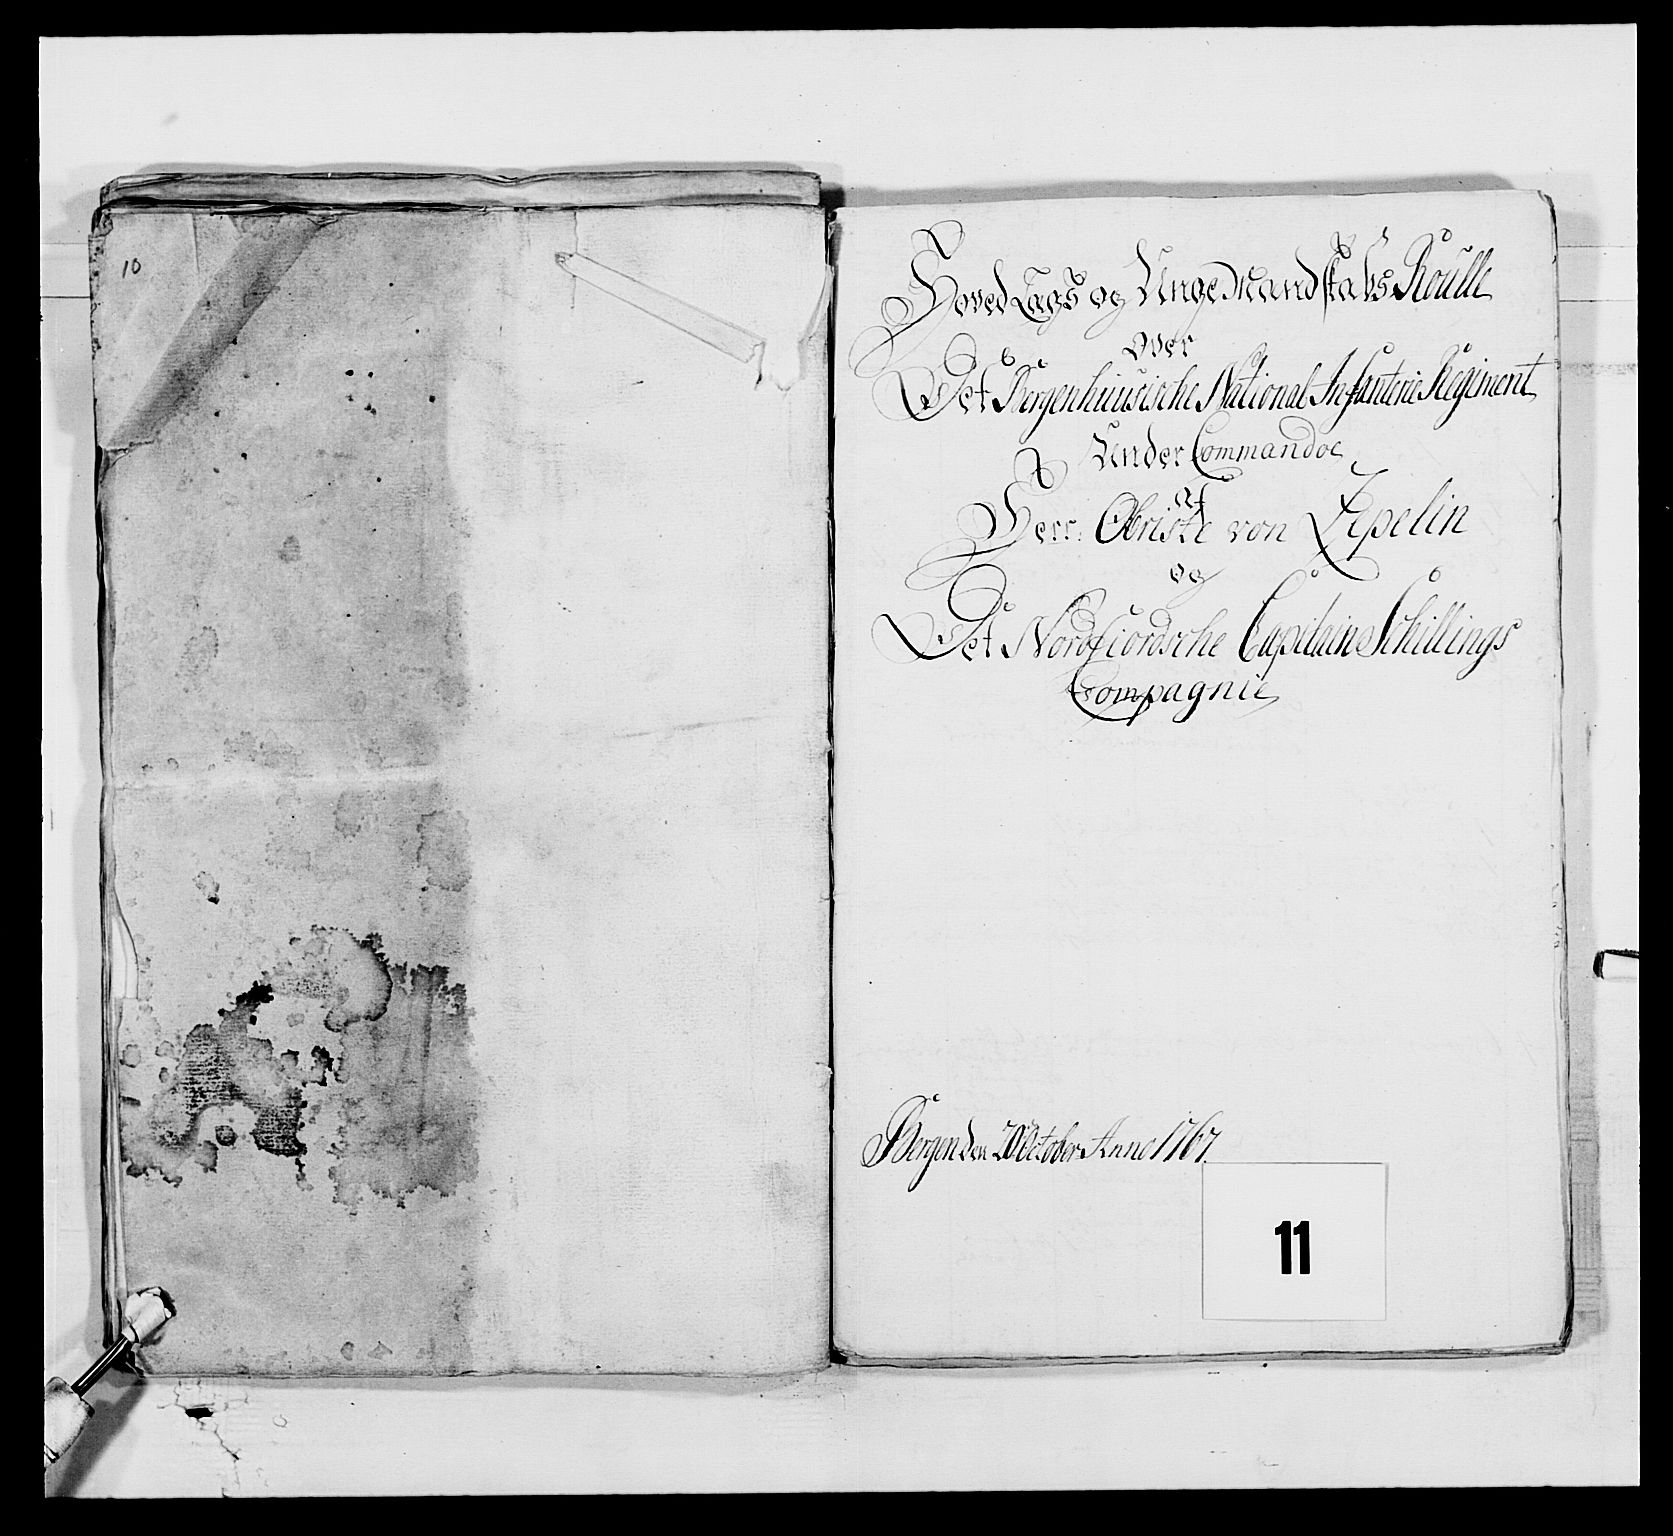 10
Hoved Lags og Unge Mandskabs Roulle
over
Det Bergenhuusische National Infanterie Regiment
Under Commando
af
Herr: Obriste von Zepelin
og
Det Nordfiordsche Capitain Schillings
Compagnie
Bergen den 20 October Anno 1767.
11